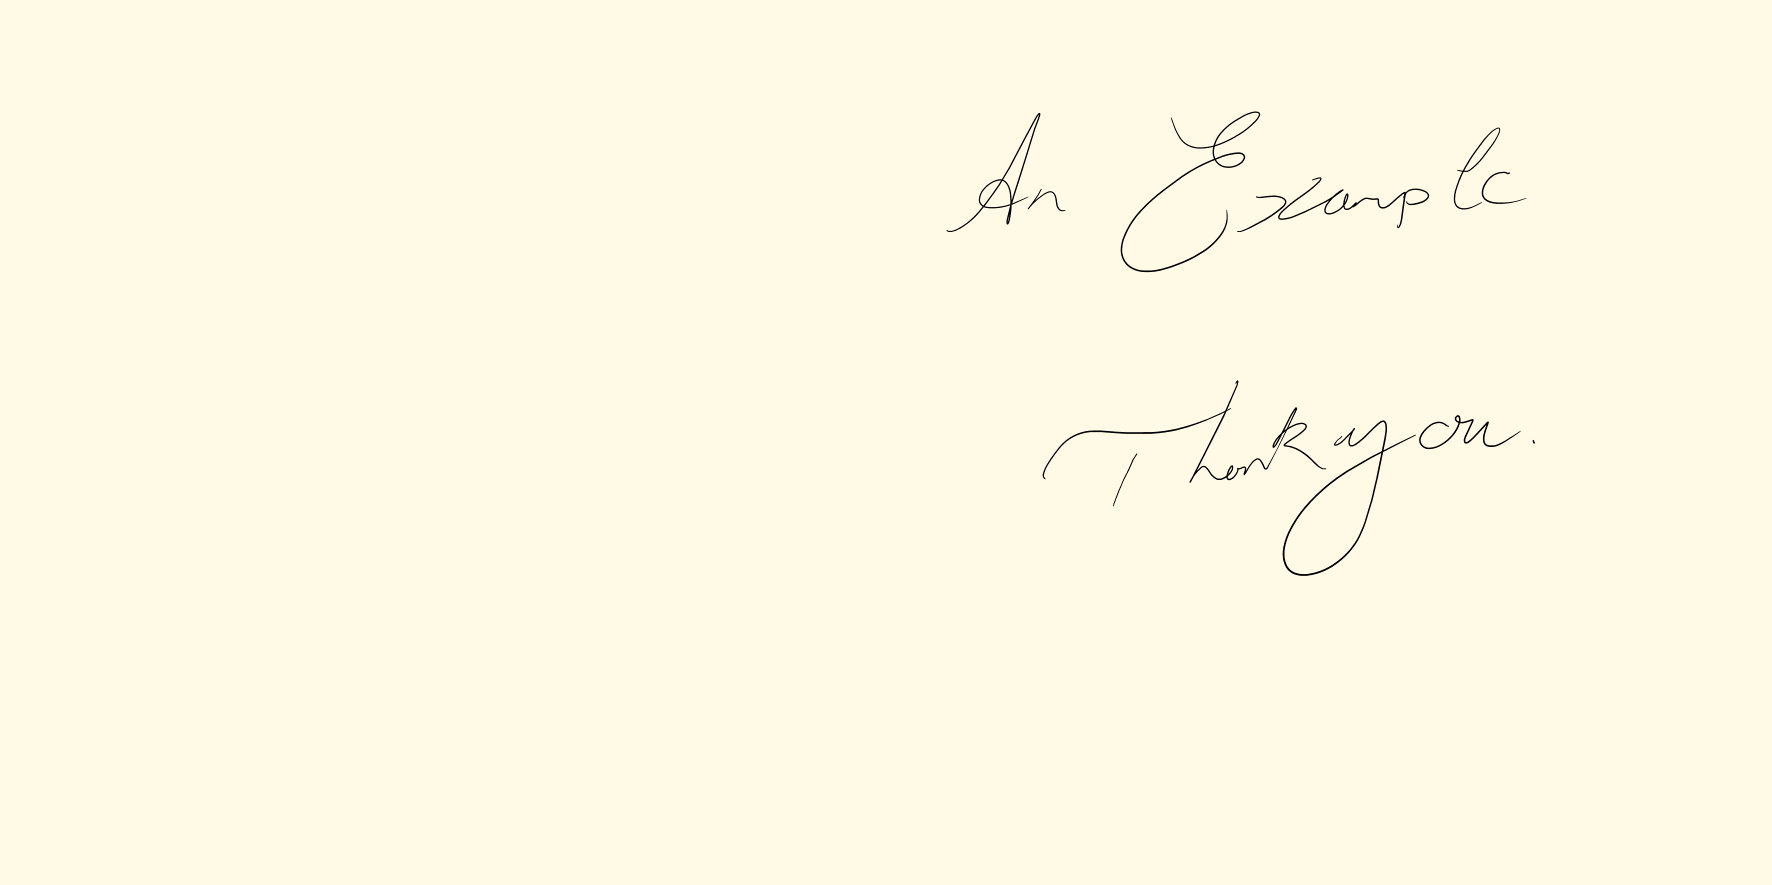 An Example
Thank you.